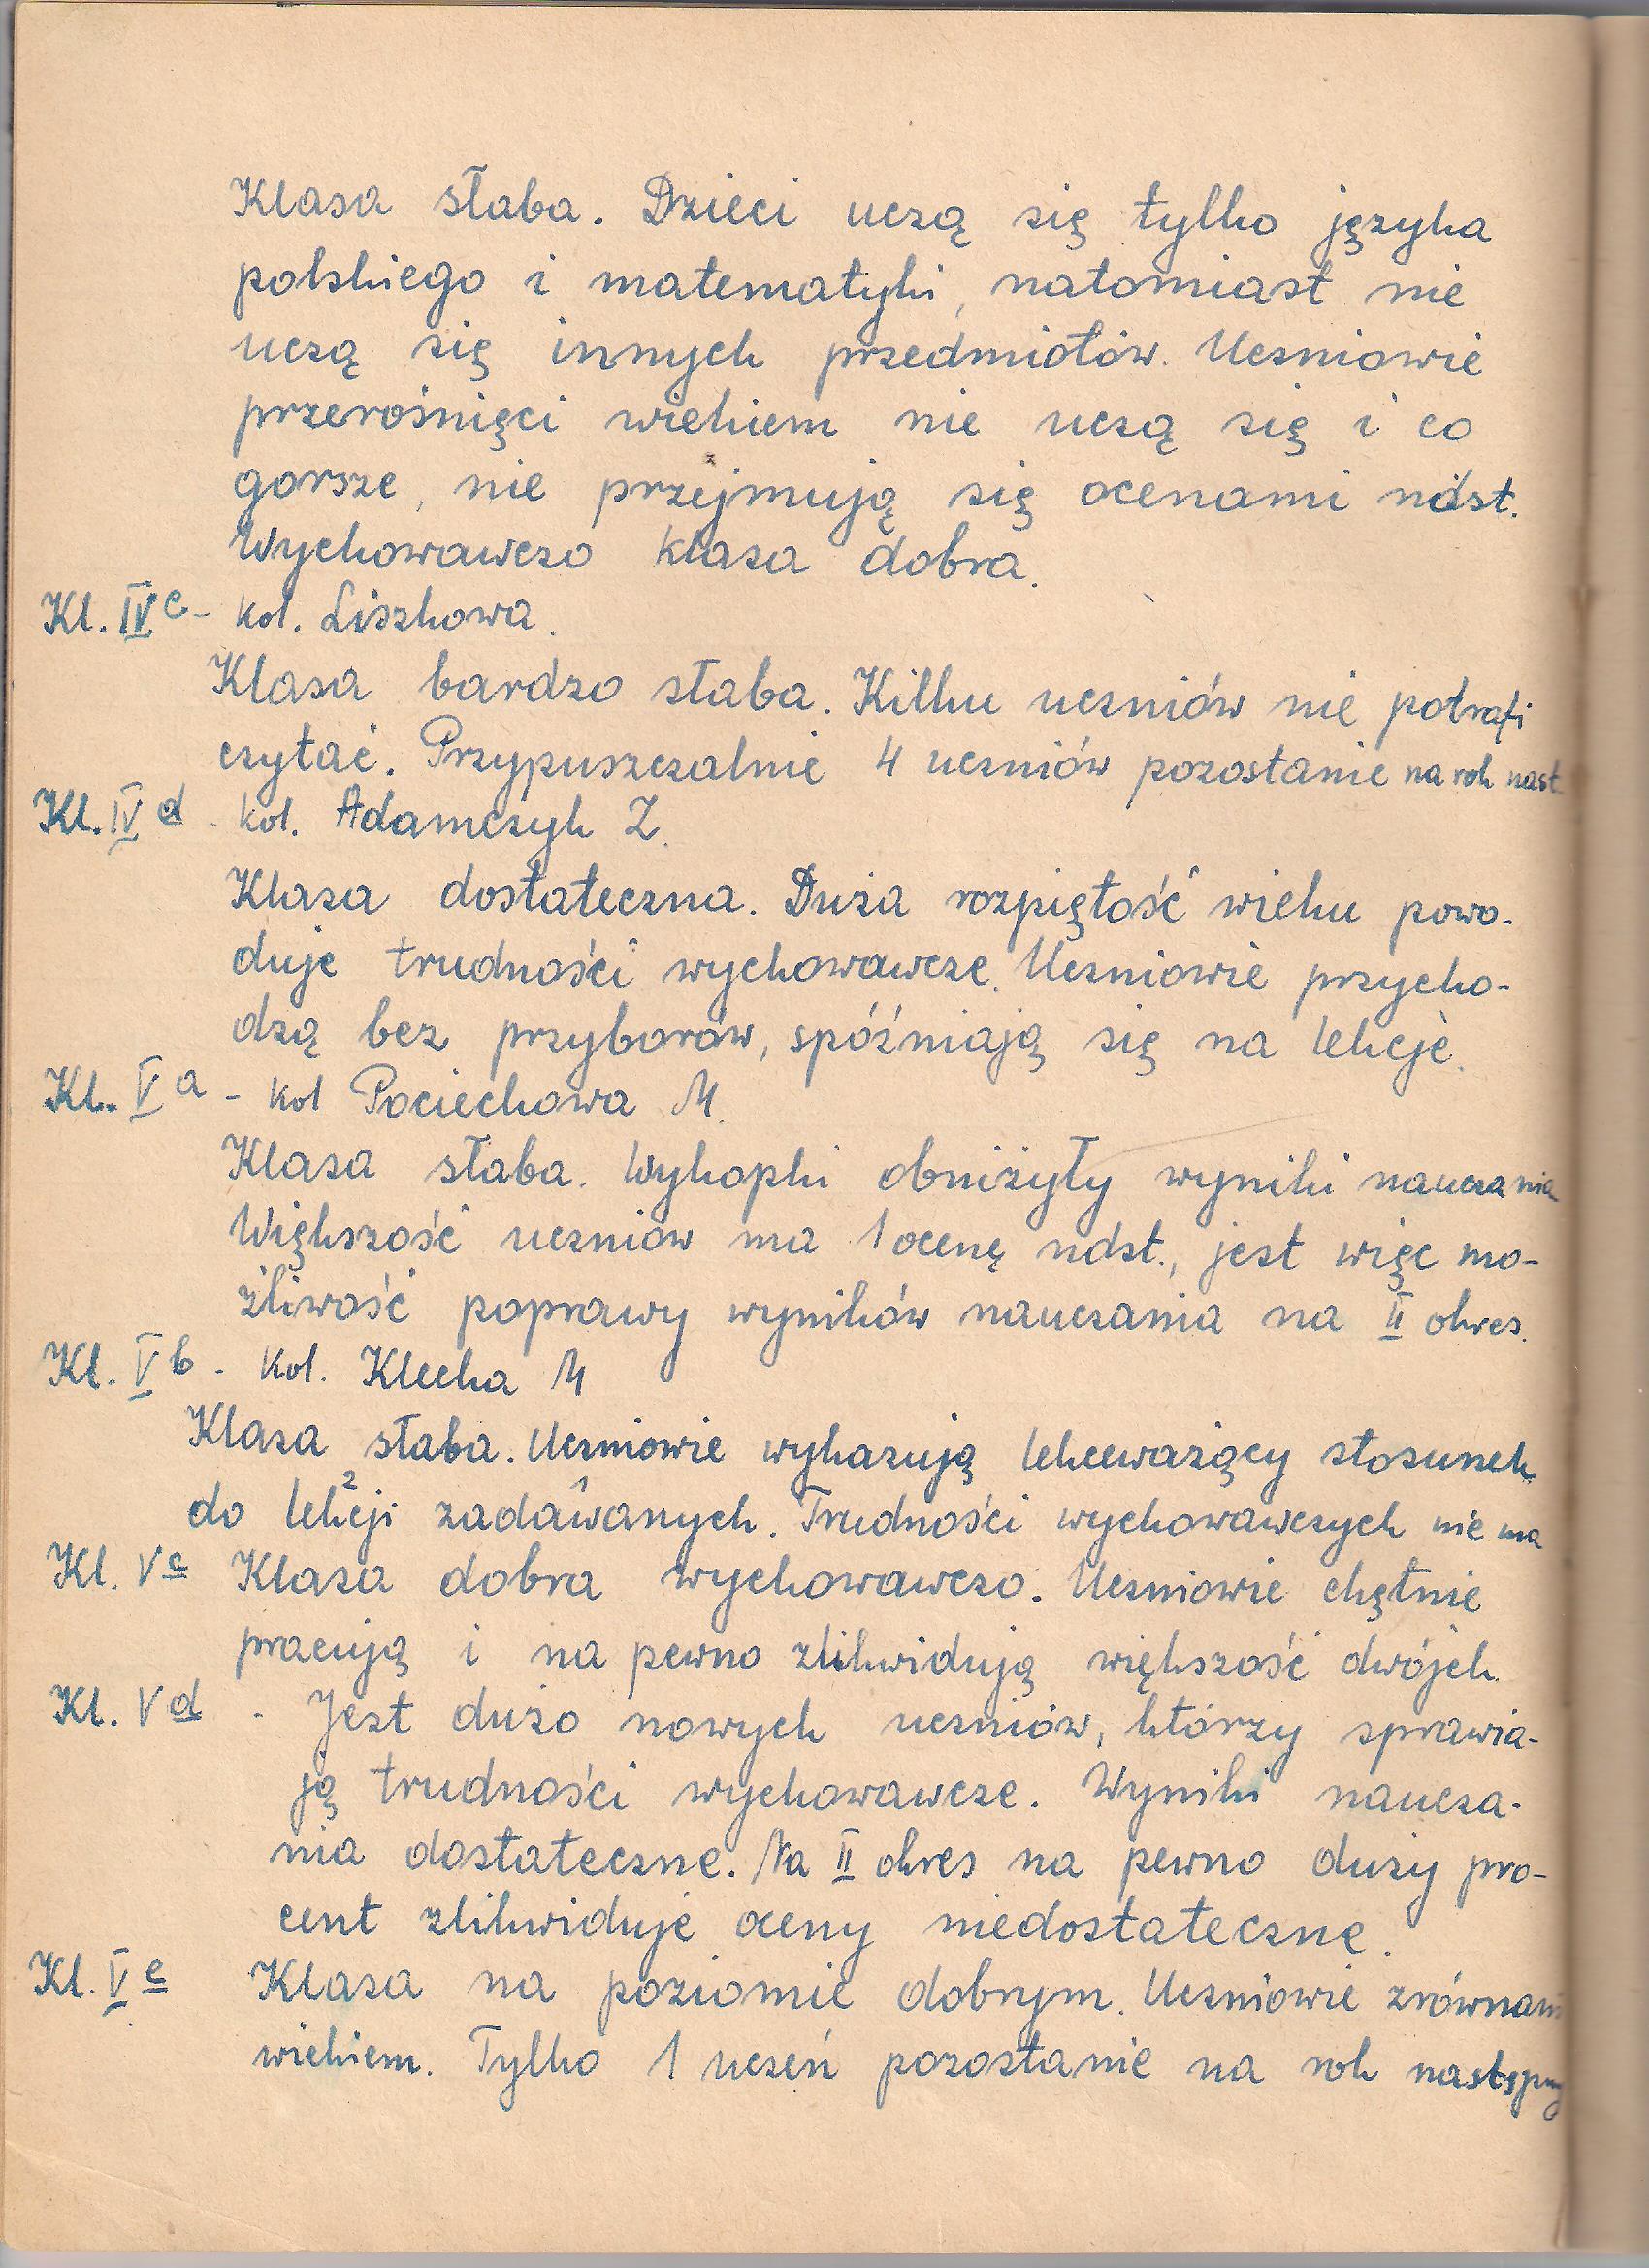 Klasa słaba. Dzieci uczą się tylko języka
polskiego i matematyki, natomiast nie
uczą się innych przedmiotów. Uczniowie
przerośnięci wiekiem nie uczą się i co
gorsze, nie przejmują się ocenami ndst.
Wychowawczo klasa dobra.
Kl. IV c - kol. Liszkowa.
Klasa bardzo słaba. Kilku uczniów nie potrafi
czytać. Przypuszczalnie 4 uczniów pozostanie na rok nast.
Kl. IV d - kol. Adamczyk Z.
Klasa dostateczna. Duża rozpiętość wieku powo-
duje trudności wychowawcze. Uczniowie przycho-
dzą bez przyborów, spóźniają się na lekcje.
Kl. V a - kol Pociechowa M.
Klasa słaba. Wykopki obniżyły wyniki nauczania
Większość uczniów ma 1 ocenę ndst., jest więc mo-
żliwość poprawy wyników nauczania na II okres.
Kl. V b - kol. Klecha M
Klasa słaba. Uczniowie wykazują lekceważący stosunek
do lekcji zadawanych. Trudności wychowawczych nie ma
Kl. V c Klasa dobra wychowawczo. Uczniowie chętnie
pracują i na pewno zlikwidują większość dwójek.
Kl. V d - Jest dużo nowych uczniów, którzy sprawia-
ją trudności wychowawcze. Wyniki naucza-
nia dostateczne. Na II okres na pewno duży pro-
cent zlikwiduje oceny niedostateczne.
Kl. V e Klasa na poziomie dobrym. Uczniowie zrównani
wiekiem. Tylko 1 uczeń pozostanie na rok następny